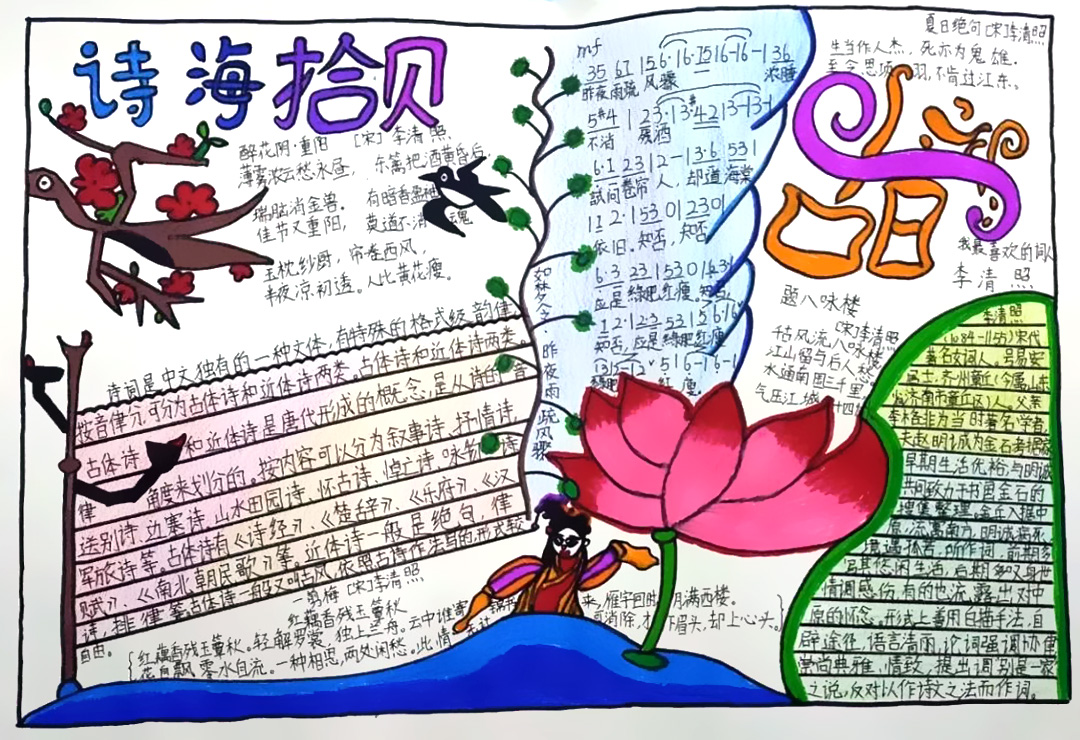 诗海拾贝
醉花阴·重阳 [宋]李清照
薄雾浓云愁永昼，东篱把酒黄昏后，
瑞脑消金兽。有暗香盈袖
佳节又重阳，莫道不消 魂
玉枕纱厨，帘卷西风，
半夜凉初透。人比黄花瘦。
诗词是中文独有的一种文体，有特殊的格式级韵律
按音律分，可分为古体诗和近体诗两类。古体诗和近体诗两类。
古体诗 和近体诗是唐代形成的概念，是从诗的音
律 角度来划分的。按内容可以分为叙事诗、抒情诗、
送别诗、边塞诗、山水田园诗、怀古诗、悼亡诗、咏物诗
军旅诗等。古体诗有《诗经》、《楚辞》、《乐府》、《汉
赋》、《南北朝民歌》等。近体诗一般是绝句、律
诗，排律等古体诗一般又叫古风，依照古诗作法写的形式较
自由。
一剪梅 [宋]李清照
红藕香残玉簟秋
红藕香残玉簟秋。轻解罗裳，独上兰舟。云中谁寄 来，雁字回时，月满西楼。
花自飘零水自流。一种相思，两处闲愁。此情 消除，才下眉头，却上心头。
如梦令·昨夜雨疏风骤
mf
35 61 156·16·1516-16-1 36
昨夜雨疏 风骤 浓睡
不消 残酒
6·1 2312-13·6 531
试问卷帘人，却道海棠
12·153012301
依旧，知否，知否
6·3 2315301
应是绿肥红瘦。知否
知否，应是绿肥红瘦
瘦
夏日绝句[宋]李清照
生当作人杰，死亦为鬼雄。
至今思项羽，不肯过江东。
我最喜欢的词人
李清照
题八咏楼
[宋]李清照
千古风流八咏楼
江山留与后人愁
水通南国三千里
气压江城十四州
李清照
(1084-1155)宋代
著名女词人，号易安
居士，齐州章丘(今属山东
济南市章丘区)人，父亲
李格非为当时著名学者，
夫赵明诚为金石考据家
早期生活优裕，与明诚
共同致力于书画金石的
搜集整理。金兵入据中
原，流寓南方，明诚病死，
境遇孤苦。所作词，前期多
写其悠闲生活，后期多叹身世
情调感伤，有的也流露出对中
原的怀念。形式上善用白描手法，自
辟途径，语言清丽，论词强调协律
崇尚典雅、情致，提出词别是一家
之说，反对以作诗文之法而作词。